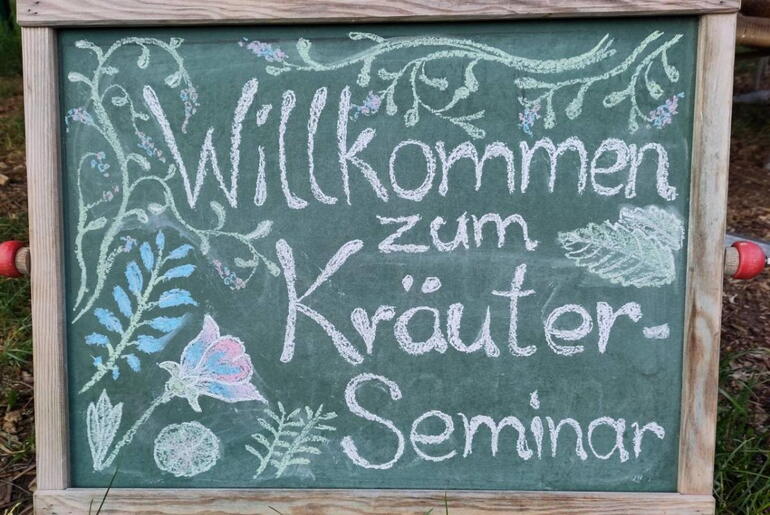 Willkommen
zum
Kräuter-
Seminar